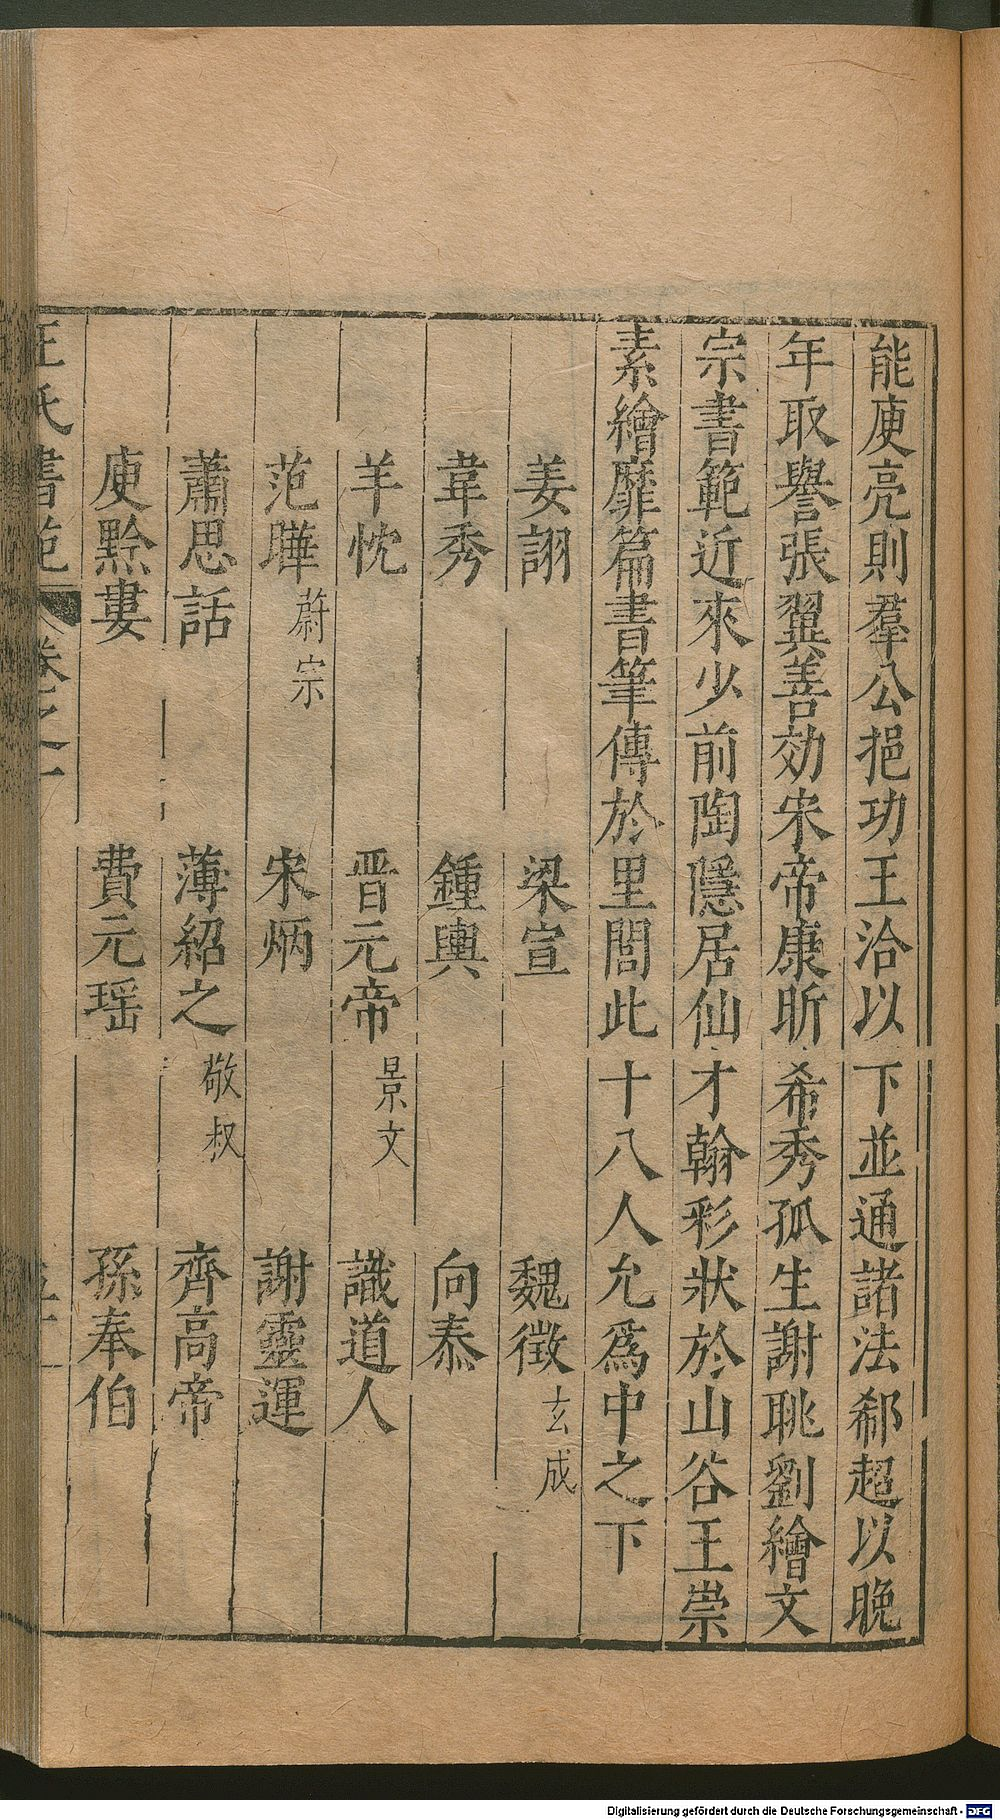 能庾亮則羣公挹功王洽以下並通諸法郗超以晚
年取譽張翼善効宋帝康昕希秀孤生謝朓劉繪文
宗書範近來少前陶隱居仙才翰彩狀於山谷王崇
素繪靡篇書筆傳於里閭此十八人允為中之下
姜詡 梁宣 魏徵 玄成
韋秀 鍾輿 向泰
羊忱 晉元帝 景文 識道人
范曄 蔚宗 宋炳 謝靈運
蕭思話 薄紹之 敬叔 齊高帝
庾黔婁 費元瑶 孫奉伯
王氏書苑 卷之一
Digitalisierung gefördert durch die Deutsche Forschungsgemeinschaft - DFG